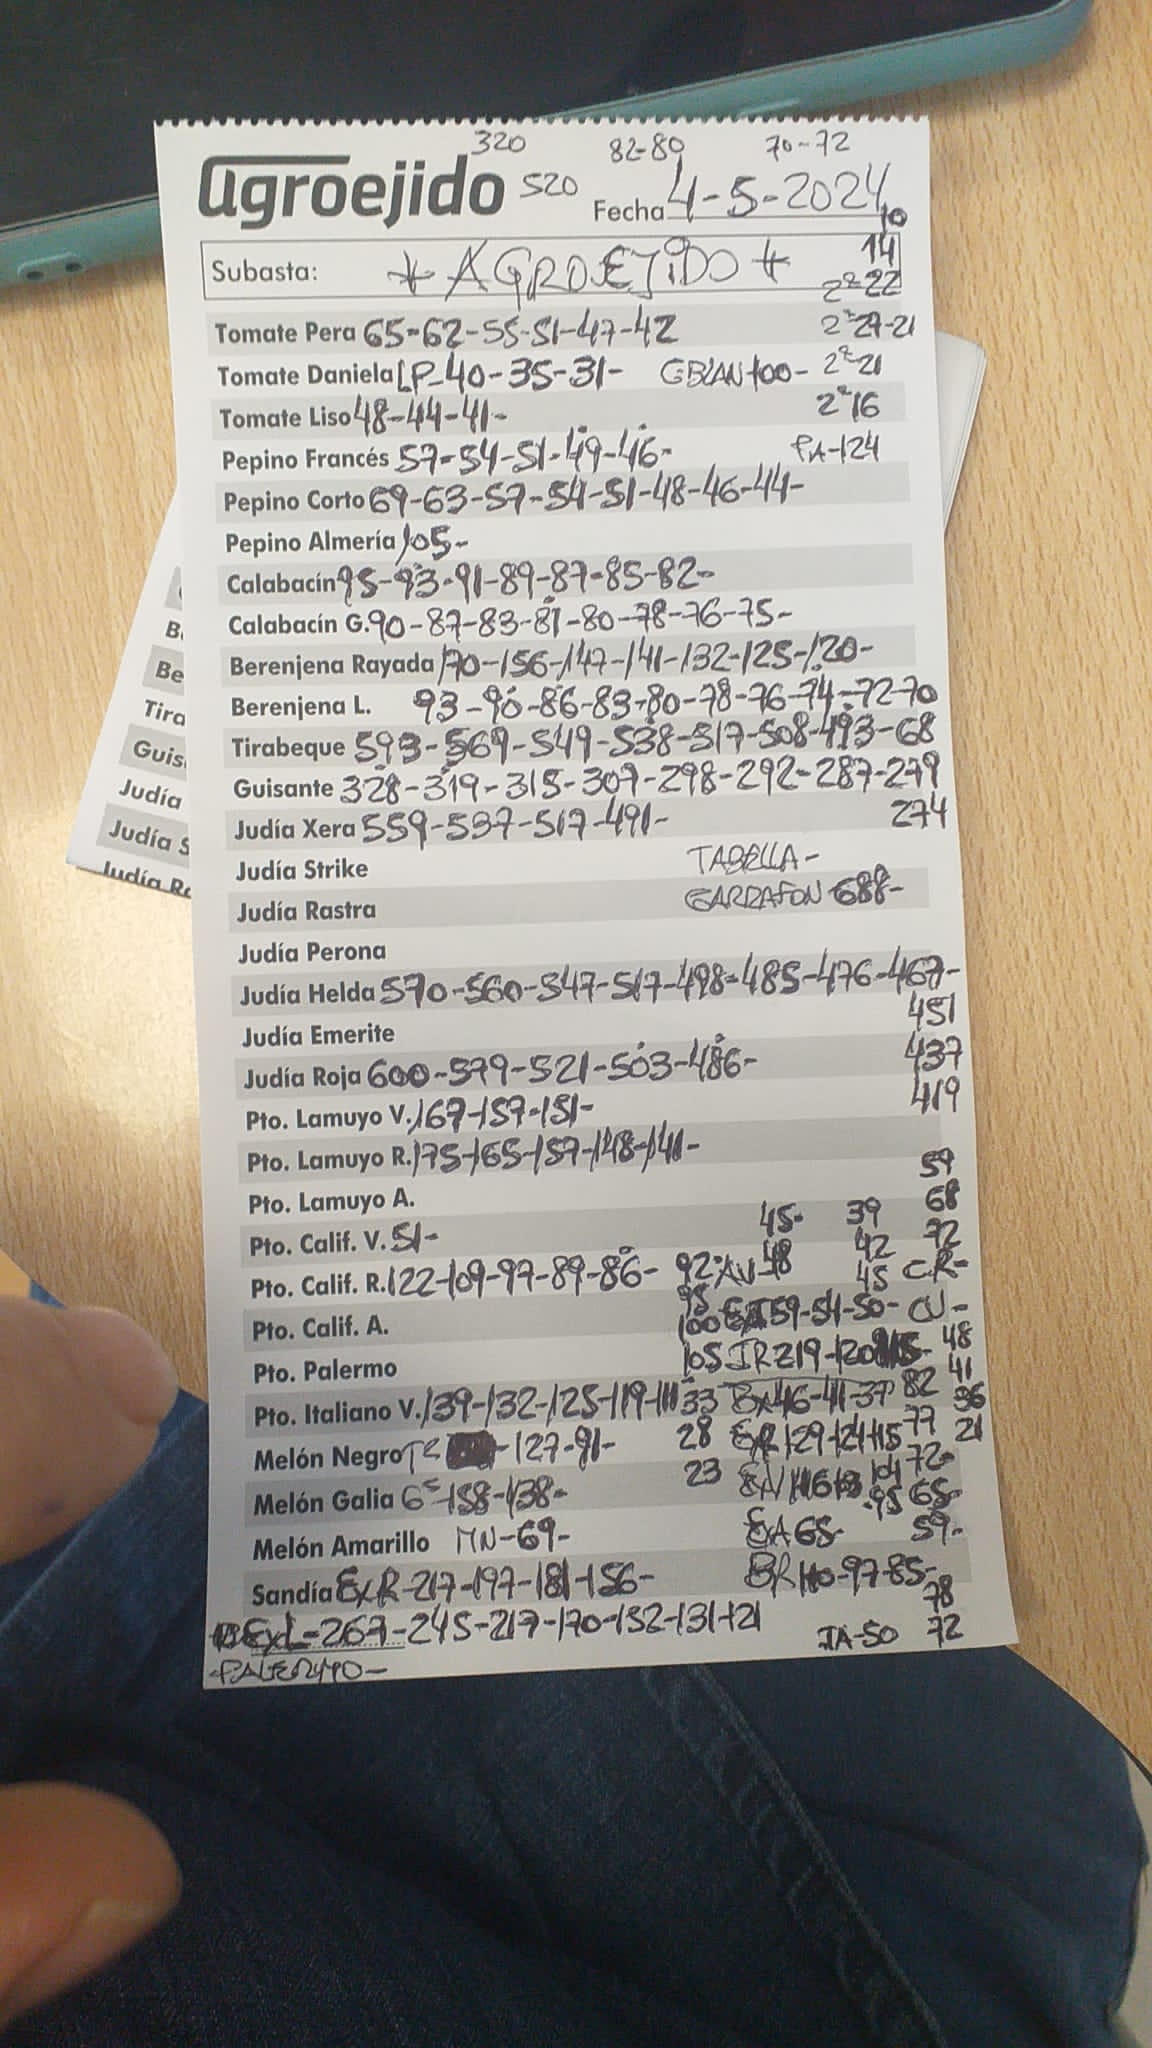 320 82-80 70-72
agroejido 520 Fecha 4-5-2024
10
Subasta: * AGROEJIDO * 14
2ª22
Tomate Pera 65-62-55-51-47-42 2ª27-21
Tomate Daniela LP-40-35-31- GBLAN 100- 2ª21
Tomate Liso 48-44-41- 2ª16
Pepino Francés 57-54-51-49-46- PA-124
Pepino Corto 69-63-57-54-51-48-46-44-
Pepino Almería 105-
Calabacín 95-93-91-89-87-85-82-
Calabacín G. 90-87-83-81-80-78-76-75-
Berenjena Rayada 170-156-147-141-132-125-120-
Berenjena L. 93-90-86-83-80-78-76-74-72-70
Tirabeque 593-569-549-538-517-508-493-68
Guisante 328-319-315-307-298-292-287-279
Judía Xera 559-537-517-491- 274
Judía Strike TABELLA-
Judía Rastra GARRAFON 688-
Judía Perona
Judía Helda 570-560-547-517-498-485-476-467-
451
Judía Emerite
437
Judía Roja 600-579-521-503-486-
419
Pto. Lamuyo V. 167-157-151-
Pto. Lamuyo R. 175-165-157-148-141-
59
Pto. Lamuyo A. 68
45- 39 72
Pto. Calif. V. 51- 48 42
Pto. Calif. R. 122-109-97-89-86- 92- AV- 45 CR-
95
Pto. Calif. A. 100 59-54-50- CU-
Pto. Palermo 105 IR 219-120 48
41
Pto. Italiano V. 139-132-125-119-111 33 46-41-37 82 36
Melón Negro 127-91- 28 129-124-115 77 21
Melón Galia 6ˢ-158-138- 23 104 72-
95 65-
Melón Amarillo MN-69- EA 65- 59-
Sandía ExR-217-197-181-156- BR 110-97-85-
78
ExL-267-245-217-170-152-131-121 IA-50 72
-PALERMO-
Be
Tira
Guis
Judía
Judía S
Judía Ra